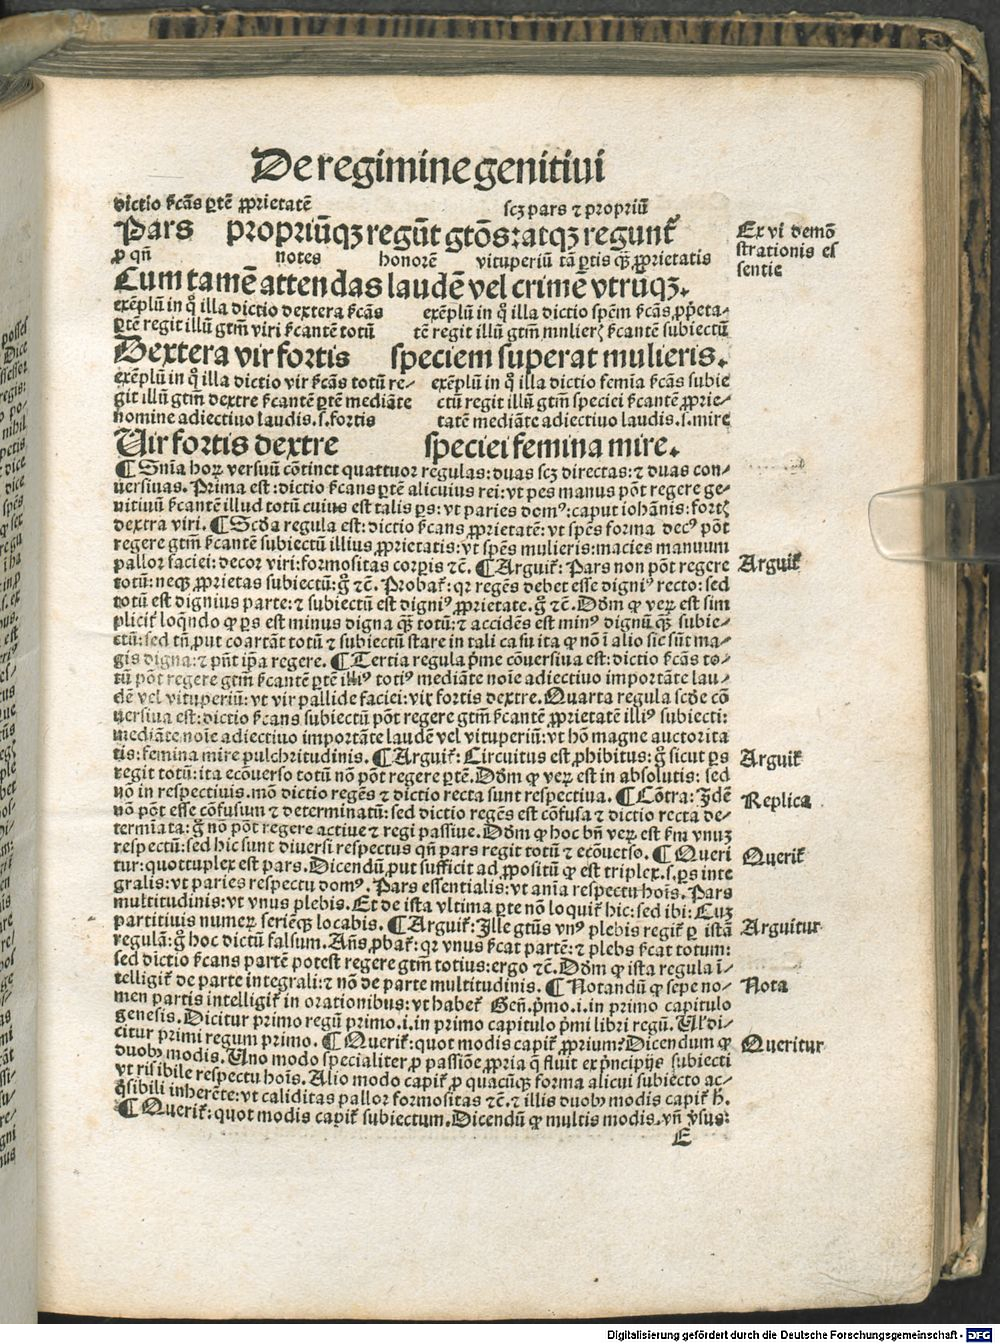 De regimine genitiui
dictio ſicãs ꝑtẽ ꝓprietatẽ scꝫ pars ⁊ propriũ
Pars propriũqꝫ regũt gtõs: atqꝫ regunt̃
ꝓ qñ notes honorẽ vituperiũ tã ꝑtis qꝫ̃ ꝓprietatis
Ex vi demõ
ſtrationis eſ
ſentie
Cum tamẽ attendas laudẽ vel crimẽ vtrũqꝫ.
exẽplũ in q̊ illa dictio dextera ſicãs exẽplũ in q̊ illa dictio ſpẽm ſicãs ꝓp̃eta⸗
ꝑtẽ regit illũ gtm̃ viri ſicantẽ totũ tẽ regit illũ gtm̃ mulierꝭ ſicantẽ ſubiectũ
Dextera vir fortis ſpeciem ſuperat mulieris.
exẽplũ in q̊ illa dictio vir ſicãs totũ re⸗ exẽplũ in q̊ illa dictio femĩa ſicãs ſubie
git illũ gtm̃ dextre ſicantẽ ꝑtẽ mediãte ctũ regit illũ gtm̃ ſpeciei ſicantẽ ꝓprie⸗
nomine adiectiuo laudis.ſ.fortis tatẽ mediãte adiectiuo laudis.ſ.mire
Vir fortis dextre ſpeciei femina mire.
¶ Snĩa horꝝ verſuũ cõtinet quattuor regulas: duas ſcꝫ directas: ⁊ duas con⸗
uerſiuas. Prima eſt: dictio ſicans ꝑtẽ alicuius rei: vt pes manus põt regere ge⸗
nitiuũ ſicantẽ illud totũ cuius eſt talis ꝑs: vt paries domꝰ: caput iohãnis: fortꝭ
dextra viri. ¶ Scd̃a regula eſt: dictio ſicans ꝓprietatẽ: vt ſpẽs forma decꝰ põt
regere gtm̃ ſicantẽ ſubiectũ illius ꝓprietatis: vt ſpẽs mulieris: macies manuum
pallor faciei: decor viri: formoſitas corꝑis ⁊c̃. ¶ Arguit̃: Pars non põt regere
Arguit̃
totũ: neqꝫ ꝓprietas ſubiectũ: g̊ ⁊c̃. Probat̃: qꝛ regẽs debet eſſe digniꝰ recto: ſed
totũ eſt dignius parte: ⁊ ſubiectũ eſt digniꝰ ꝓprietate. g̊ ⁊c̃. Dd̃m ꝙ verꝝ eſt ſim
plicit̃ loqñdo ꝙ ꝑs eſt minus digna qꝫ̃ totũ: ⁊ accidẽs eſt minꝰ dignũ qꝫ̃ ſubie⸗
ctũ: ſed tñ put coartãt totũ ⁊ ſubiectũ ſtare in tali caſu ita ꝙ nõ ĩ alio ſic ſũt ma⸗
gis digna: ⁊ pñt ip̃a regere. ¶ Tertia regula p̃me cõuerſiua eſt: dictio ſicãs to⸗
tũ põt regere gtm̃ ſicantẽ ꝑtẽ illiꝰ totiꝰ mediãte noĩe adiectiuo importãte lau⸗
dẽ vel vituperiũ: vt vir pallide faciei: vir fortis dextre. Quarta regula ſcd̃e cõ
uerſiua eſt: dictio ſicans ſubiectũ põt regere gtm̃ ſicantẽ ꝓprietatẽ illiꝰ ſubiecti:
mediãte noĩe adiectiuo importãte laudẽ vel vituperiũ: vt hõ magne auctorita
tis: femina mire pulchritudinis. ¶ Arguit̃: Circuitus eſt ꝓhibitus: g̊ ſicut ꝑs
Arguit̃
regit totũ: ita ecõuerſo totũ nõ põt regere ꝑtẽ. Dd̃m ꝙ verꝝ eſt in abſolutis: ſed
nõ in reſpectiuis. mõ dictio regẽs ⁊ dictio recta ſunt reſpectiua. ¶ Cõtra: Idẽ
Replica
nõ põt eſſe cõfuſum ⁊ determinatũ: ſed dictio regẽs eſt cõfuſa ⁊ dictio recta de⸗
termĩata: g̊ nõ põt regere actiue ⁊ regi paſſiue. Dd̃m ꝙ hoc bñ verꝝ eſt ſm̃ vnuꝫ
reſpectũ: ſed hic ſunt diuerſi reſpectus qñ pars regit totũ ⁊ ecõuerſo. ¶ Queri
Querit̃
tur: quottuplex eſt pars. Dicendũ put ſufficit ad ꝓpoſitũ ꝙ eſt triplex.ſ.ꝑs inte
gralis: vt paries reſpectu domꝰ. Pars eſſentialis: vt anĩa reſpectu hoĩs. Pars
multitudinis: vt vnus plebis. Et de iſta vltima ꝑte nõ loquit̃ hic: ſed ibi: Cuꝫ
partitiuis numerꝝ ſeriẽqꝫ locabis. ¶ Arguit̃: Ille gtũs vnꝰ plebis regit̃ ꝑ iſtã
Arguitur
regulã: g̊ hoc dictũ falſum. Añs ꝓbat̃: qꝛ vnus ſicat partẽ: ⁊ plebs ſicat totum:
ſed dictio ſicans partẽ poteſt regere gtm̃ totius: ergo ⁊c̃. Dd̃m ꝙ iſta regula ĩ⸗
telligit̃ de parte integrali: ⁊ nõ de parte multitudinis. ¶ Notandũ ꝙ ſepe no⸗
Nota
men partis intelligit̃ in orationibus: vt habet̃ Geñ. p̃mo.i.in primo capitulo
geneſis. Dicitur primo regũ primo.i.in primo capitulo p̃mi libri regũ. Vl̃ di⸗
citur primi regum primo. ¶ Querit̃: quot modis capit̃ ꝓprium? Dicendum ꝙ
Queritur
duobꝰ modis. Uno modo ſpecialiter ꝓ paſſiõe ꝓpria q̃ fluit ex p̃ncipijs ſubiecti
vt riſibile reſpectu hoĩs. Alio modo capit̃ ꝓ quacũqꝫ forma alicui ſubiecto ac⸗
q̃ſibili inherẽte: vt caliditas pallor formoſitas ⁊c̃. ⁊ illis duobꝰ modis capit̃ h̃.
¶ Querit̃: quot modis capit̃ ſubiectum. Dicendũ ꝙ multis modis. vñ v̓ſus:
E
Digitalisierung gefördert durch die Deutsche Forschungsgemeinschaft - DFG